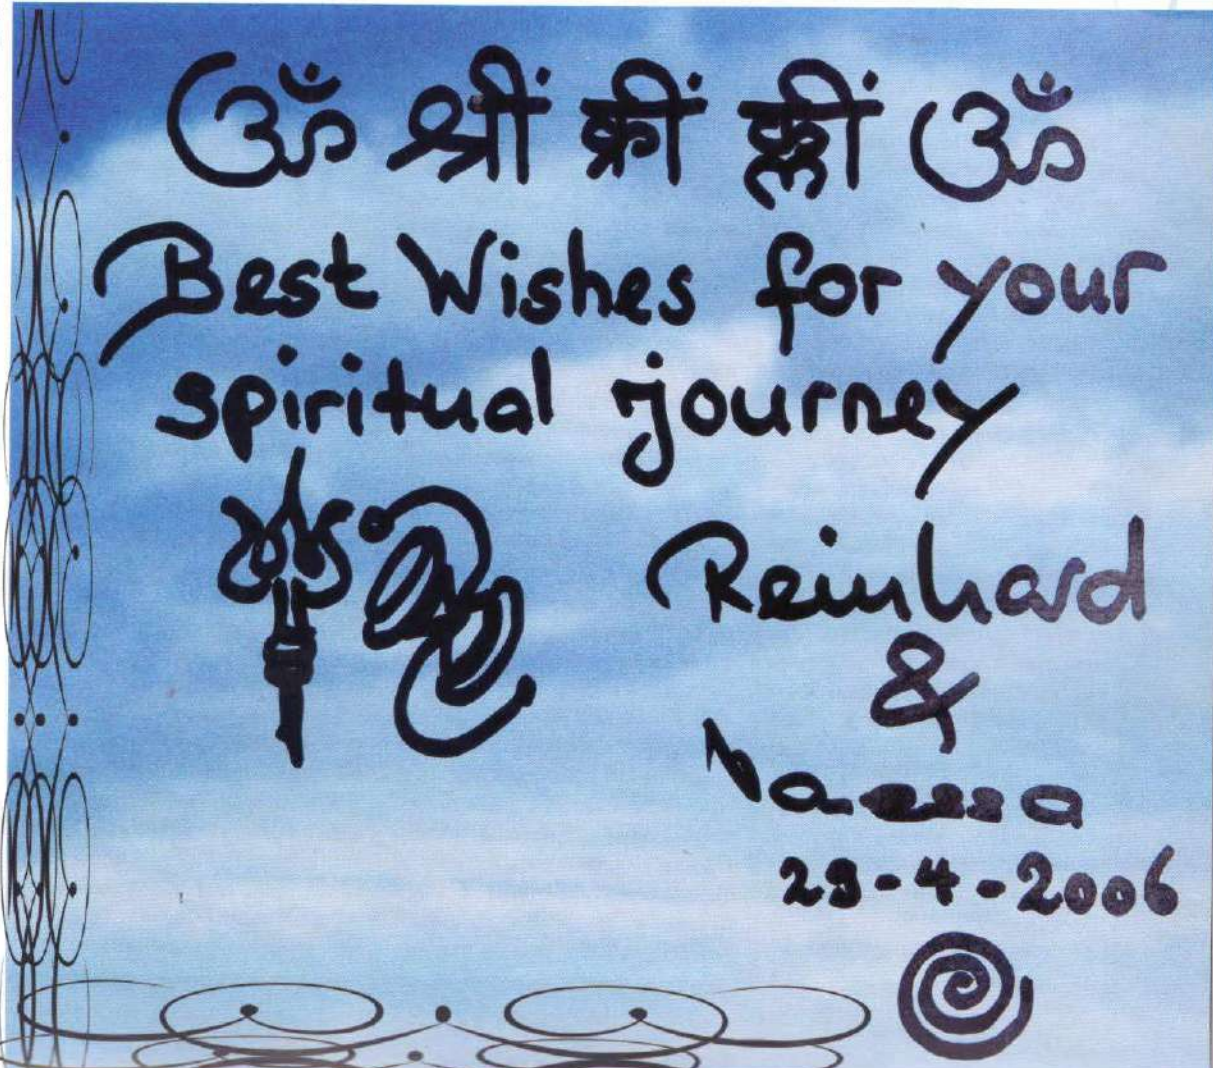 ॐ श्रीं क्रीं क्लीं ॐ
Best Wishes for your
spiritual journey
Reinhard
&
29-4-2006